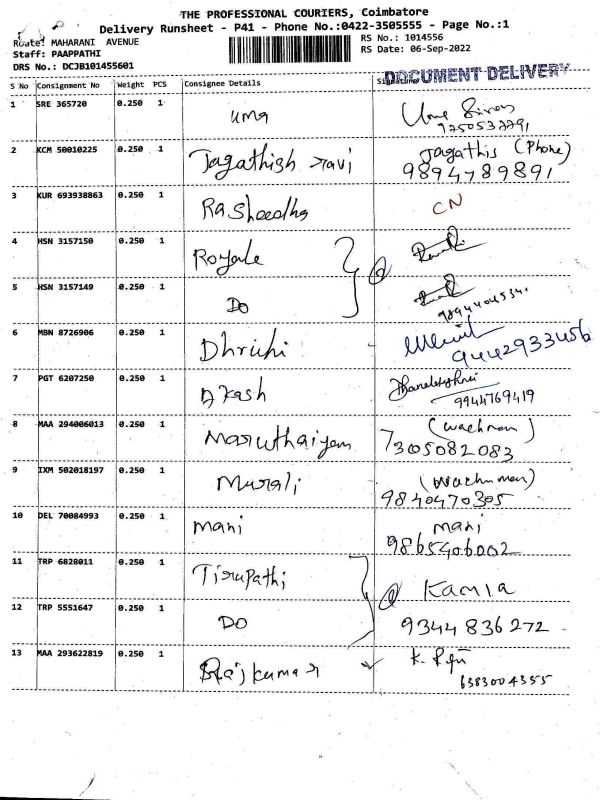 THE PROFESSIONAL COURIERS, Coimbatore
Delivery Runsheet - P41 - Phone No.:0422-3505555 - Page No.:1
Route: MAHARANI AVENUE
RS No.: 1014556
Staff: PAAPPATHI
RS Date: 06-Sep-2022
DRS No.: DCJB101455601
DOCUMENT DELIVERY
S No Consignment No Weight PCS Consignee Details Signature
1 SRE 365720 0.250 1 uma
2 KCM 50010225 0.250 1 Jagathish ravi Jagathis (Phone)
9894789891
3 KUR 693938863 0.250 1 Rasheedha CN
4 HSN 3157150 0.250 1 Royale
5 HSN 3157149 0.250 1 DO
6 MBN 8726906 0.250 1 Dhruhi
9442933456
7 PGT 6207250 0.250 1 Akash
9944769419
8 MAA 294006013 0.250 1 Maruthaiyam (wachman)
7305082083
9 IXM 502018197 0.250 1 Murali (wachman)
9840470305
10 DEL 70084993 0.250 1 mani mani
9865406002
11 TRP 6828011 0.250 1 Tirupathi Kamla
12 TRP 5551647 0.250 1 DO 9344836272
13 MAA 293622819 0.250 1 Rajkumar
6383004355